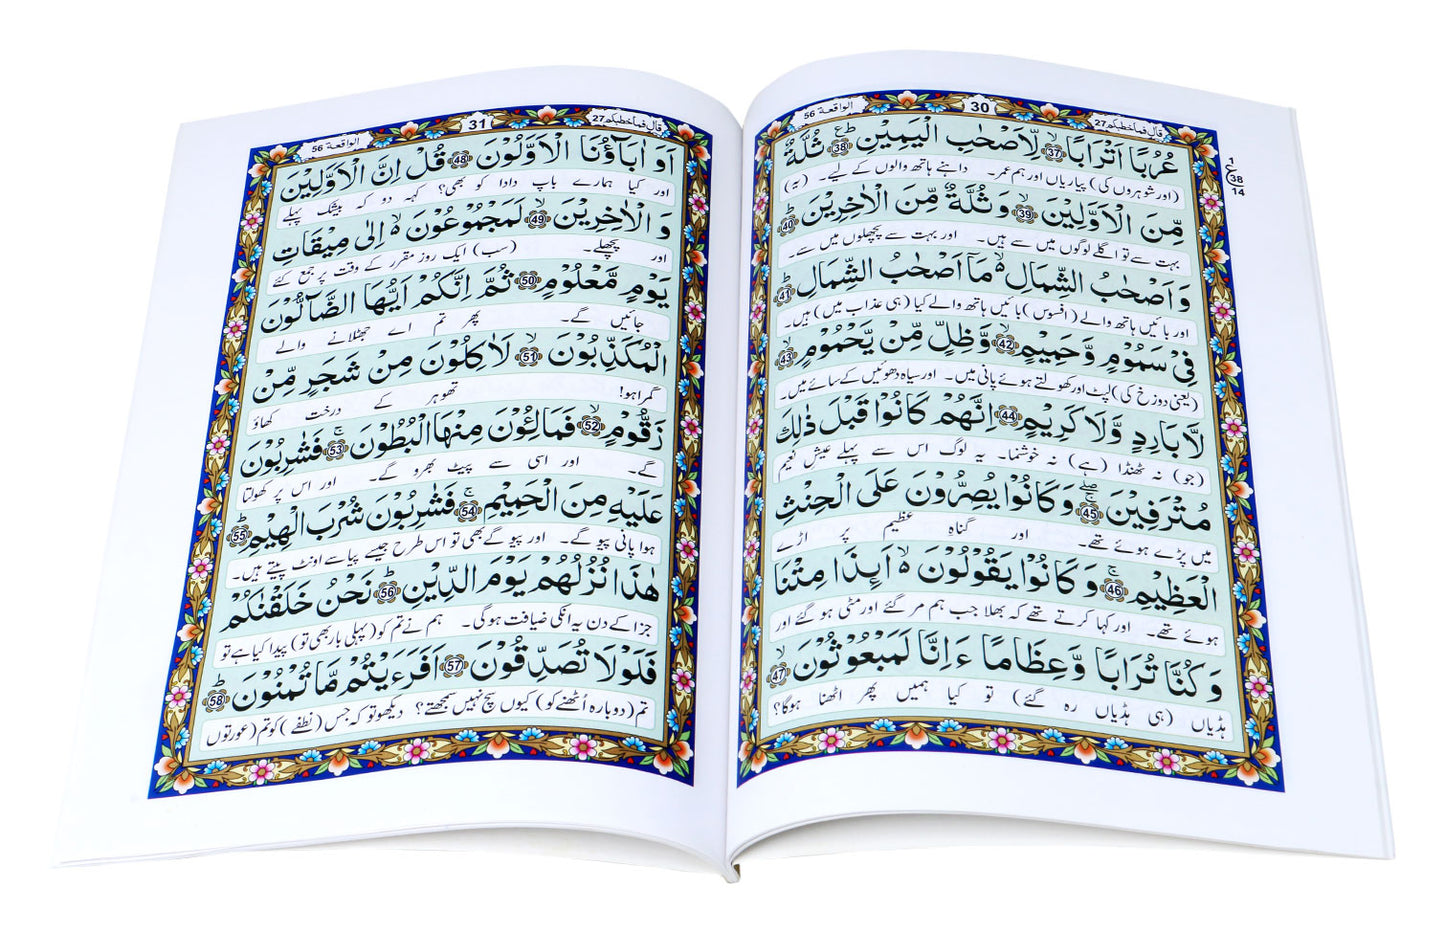 قال فماخطبکم 27
30
الواقعة 56
عُرُبًا اَتْرَابًا ۙ﴿37﴾ لِّاَصْحٰبِ الْيَمِيْنِ ﴿38﴾ ؕ۠ ثُلَّةٌ
(اور شوہروں کی) پیاریاں اور ہم عمر۔ داہنے ہاتھ والوں کے لیے۔ (یہ)
مِّنَ الْاَوَّلِيْنَ ۙ﴿39﴾ وَثُلَّةٌ مِّنَ الْاٰخِرِيْنَ ؕ﴿40﴾
بہت سے تو اگلے لوگوں میں سے ہیں۔ اور بہت سے پچھلوں میں سے۔
وَاَصْحٰبُ الشِّمَالِ ۙ۬ مَاۤ اَصْحٰبُ الشِّمَالِ ؕ﴿41﴾
اور بائیں ہاتھ والے (افسوس) بائیں ہاتھ والے کیا (ہی عذاب میں) ہیں۔
فِيْ سَمُوْمٍ وَّحَمِيْمٍ ۙ﴿42﴾ وَّظِلٍّ مِّنْ يَّحْمُوْمٍ ۙ﴿43﴾
(یعنی دوزخ کی) لپٹ اور کھولتے ہوئے پانی میں۔ اور سیاہ دھوئیں کے سائے میں۔
لَّا بَارِدٍ وَّلَا كَرِيْمٍ ﴿44﴾ اِنَّهُمْ كَانُوْا قَبْلَ ذٰلِكَ
(جو) نہ ٹھنڈا (ہے) نہ خوشنما۔ یہ لوگ اس سے پہلے عیش نعیم
مُتْرَفِيْنَ ۚۖ﴿45﴾ وَكَانُوْا يُصِرُّوْنَ عَلَى الْحِنْثِ
میں پڑے ہوئے تھے۔ اور گناہِ عظیم پر اڑے
الْعَظِيْمِ ۚ﴿46﴾ وَكَانُوْا يَقُوْلُوْنَ ۙ۬ اَئِذَا مِتْنَا
ہوئے تھے۔ اور کہا کرتے تھے کہ بھلا جب ہم مر گئے اور مٹی ہو گئے اور
وَكُنَّا تُرَابًا وَّعِظَامًا ءَاِنَّا لَمَبْعُوْثُوْنَ ۙ﴿47﴾
ہڈیاں (ہی ہڈیاں رہ گئے) تو کیا ہمیں پھر اٹھنا ہوگا؟
1
ع
38
14
قال فماخطبکم 27
31
الواقعة 56
اَوَ اٰبَآؤُنَا الْاَوَّلُوْنَ ﴿48﴾ قُلْ اِنَّ الْاَوَّلِيْنَ
اور کیا ہمارے باپ دادا کو بھی؟ کہہ دو کہ بیشک پہلے
وَالْاٰخِرِيْنَ ۙ﴿49﴾ لَمَجْمُوْعُوْنَ ۙ۬ اِلٰى مِيْقَاتِ
اور پچھلے۔ (سب) ایک روز مقرر کے وقت پر جمع کئے
يَوْمٍ مَّعْلُوْمٍ ﴿50﴾ ثُمَّ اِنَّكُمْ اَيُّهَا الضَّآلُّوْنَ
جائیں گے۔ پھر تم اے جھٹلانے والے
الْمُكَذِّبُوْنَ ۙ﴿51﴾ لَاٰكِلُوْنَ مِنْ شَجَرٍ مِّنْ
گمراہو! تھوہر کے درخت کھاؤ
زَقُّوْمٍ ۙ﴿52﴾ فَمَالِئُوْنَ مِنْهَا الْبُطُوْنَ ۚ﴿53﴾ فَشٰرِبُوْنَ
گے۔ اور اسی سے پیٹ بھرو گے۔ اور اس پر کھولتا
عَلَيْهِ مِنَ الْحَمِيْمِ ۚ﴿54﴾ فَشٰرِبُوْنَ شُرْبَ الْهِيْمِ ؕ﴿55﴾
ہوا پانی پیو گے۔ اور پیو گے بھی تو اس طرح جیسے پیاسے اونٹ پیتے ہیں۔
هٰذَا نُزُلُهُمْ يَوْمَ الدِّيْنِ ؕ﴿56﴾ نَحْنُ خَلَقْنٰكُمْ
جزا کے دن یہ انکی ضیافت ہوگی۔ ہم نے تم کو (پہلی بار بھی تو) پیدا کیا ہے تو
فَلَوْلَا تُصَدِّقُوْنَ ﴿57﴾ اَفَرَءَيْتُمْ مَّا تُمْنُوْنَ ؕ﴿58﴾
تم (دوبارہ اُٹھنے کو) کیوں سچ نہیں سمجھتے؟ دیکھو تو کہ جس (نطفے) کو تم (عورتوں